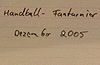 Handball- Fanturnier
Dezember 2005